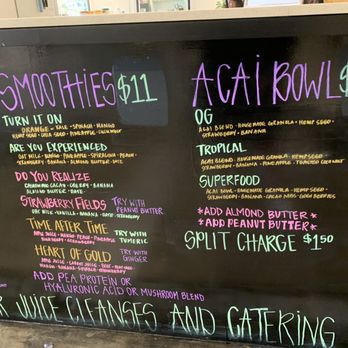 SMOOTHIES $11
TURN IT ON
ORANGE KALE SPINACH MANGO
HEMP SEED CHIA SEED PINEAPPLE
ARE YOU EXPERIENCED
OAT MILK BANANA PINEAPPLE SPIRULINA
STRAWBERRY BANANA ALMOND BUTTER DATE
DO YOU REALIZE
CACAO DATES BANANA
ALMOND BUTTER DATE
STRAWBERRY FIELDS TRY WITH
PEANUT BUTTER
OAT MILK VANILLA BANANA DATE STRAWBERRY
TIME AFTER TIME TRY WITH
TUMERIC
APPLE JUICE MANGO PINEAPPLE
HEART OF GOLD TRY WITH
GINGER
APPLE JUICE
MANGO BANANA STRAWBERRY
ADD PEA PROTEIN OR
HYALURONIC ACID OR MUSHROOM BLEND
ACAI BOWL $
OG
ACAI BLEND HOUSEMADE GRANOLA HEMP SEED
STRAWBERRY BANANA
TROPICAL
ACAI BLEND HOUSEMADE GRANOLA HEMP SEED
BANANA PINEAPPLE TOASTED COCONUT
SUPERFOOD
ACAI BOWL HOUSEMADE GRANOLA HEMP SEED
STRAWBERRY BANANA CACAO NIBS GOJI BERRIES
*ADD ALMOND BUTTER*
*ADD PEANUT BUTTER*
SPLIT CHARGE $1.50
R JUICE CLEANSES AND CATERING